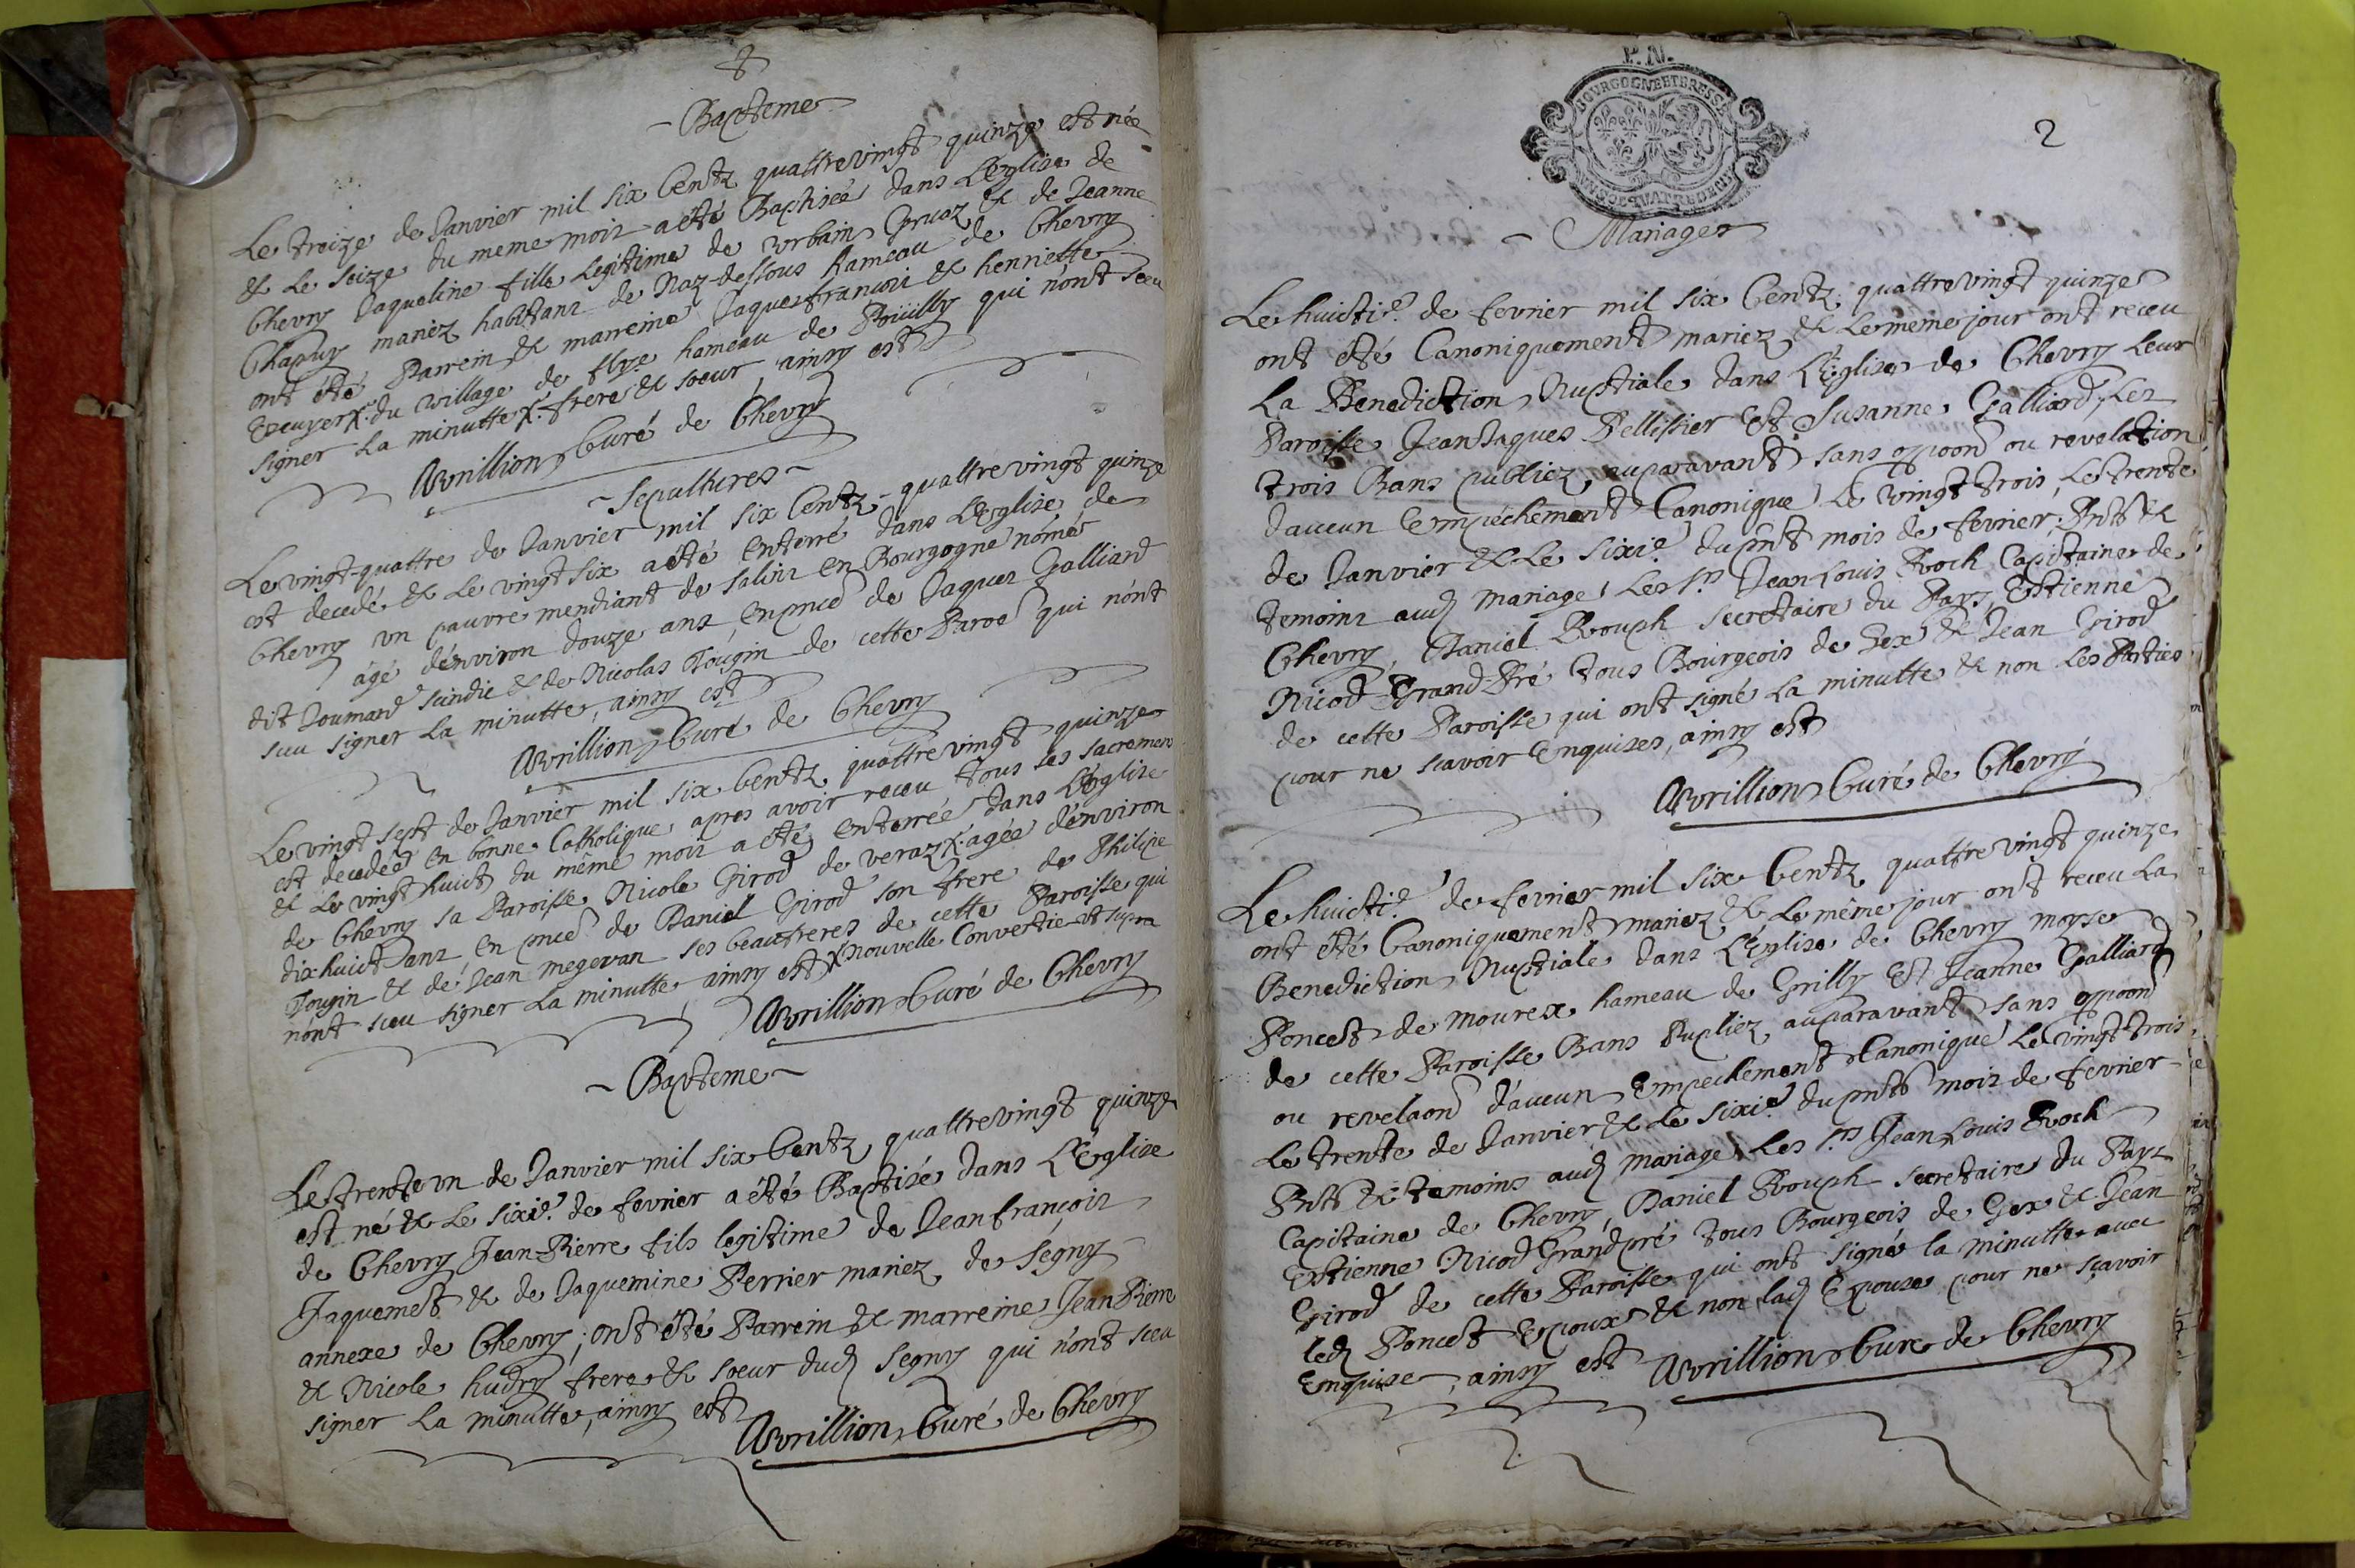 Bapteme
Le treize de Janvier mil six Centz quattrevingt quinze est née
& Le seize du meme mois a été Baptisée dans L'Eglise de
Chevry Jaqueline fille Legitime de Urbain Gruaz & de Jeanne
Chapuy mariez habitans de Naz-dessous hameau de Chevry
ont été Parrein & marreine Jaquesfrançois & henriette
Ecuyer X. du village de hameau de Poüilly qui n'ont sceu
signer La minutte X. frere & soeur, ainsy est
Avrillion Curé de Chevry
Sepultures
Le vingt-quattre de Janvier mil six Centz quattrevingt quinze
est decedé & Le vingt six a été Enterré dans L'Eglise de
Chevry un pauvre mendiant de salins en Bourgogne nômé
âgé d'environ douze ans, en pnce de Jaques Galliard
dit Joumard sindic & de Nicolas Fougin de cette Paroe qui n'ont
sceu signer La minutte, ainsy est
Avrillion Curé de Chevry
Le vingt sept de Janvier mil six Centz quattrevingt quinze
est decedée en bonne Catholique apres avoir receu tous ses sacremens
& Le vingt huict du même mois a été enterrée dans L'Eglise
de Chevry sa Paroisse Nicole Girod de veraz X. agée d'environ
dixhuict ans, en pnce de Daniel Girod son frere de Philipe
Fougin & de Jean megevan ses beaufreres de cette Paroisse qui
n'ont sceu signer La minutte ainsy est X nouvelle Convertie ut supra
Avrillion Curé de Chevry
Bapteme
Le trente un de Janvier mil six Centz quattrevingt quinze
est né & Le sixie. de fevrier a été Baptisé dans L'Eglise
de Chevry Jean-Pierre fils legitime de Jeanfrançois
Jaquemet & de Jaquemine Perrier mariez de segny
annexe de Chevry; ont été Parrein & marreine Jean Pierre
& Nicole hudry frere & soeur dud segny qui n'ont sceu
signer La minutte, ainsy est
Avrillion Curé de Chevry
BOVRGOGNE ET BRESSE
2
Mariages
Le huictie. de fevrier mil six Centz quattrevingt quinze
ont été Canoniquement mariez & Le meme jour ont receu
La Benediction Nuptiale dans L'Eglise de Chevry Leur
Paroisse Jean Jaques Pellissier Et Susanne Galliard, Les
trois Bans publiez auparavant sans oppoon ou revelation
d'aucun Empêchement Canonique Le vingt trois, Le trente
de Janvier & Le sixie. du pnt mois de fevrier. Pnts &
temoins aud mariage Les srs Jean Louis Roch Capitaine de
Chevry, Daniel Rouph secretaire du Pays, Estienne
Nicod Grand-Pré tous Bourgeois de Gex & Jean Girod
de cette Paroisse qui ont signé La minutte & non Les Parties
pour ne scavoir Enquises, ainsy est
Avrillion Curé de Chevry
Le huictie. de fevrier mil six Centz quattrevingt quinze
ont été Canoniquement mariez & Le même jour ont receu La
Benediction Nuptiale dans L'Eglise de Chevry moyse
Poncet de mourex hameau de Grilly Et Jeanne Galliard
de cette Paroisse Bans Pupliez auparavant sans oppoon
ou revelaon d'aucun Empechement Canonique Le vingt trois
Le trente de Janvier & Le sixie. du pnt mois de fevrier
Pnts & temoins aud mariage Les srs Jean Louis Roch
Capitaine de Chevry, Daniel Rouph secretaire du Pays
Estienne Nicod Grandpré tous Bourgeois de Gex & Jean
Girod de cette Paroisse qui ont signé la minutte avec
led Poncet Epoux & non lad Epouse pour ne sçavoir
Enquise, ainsy est Avrillion Curé de Chevry